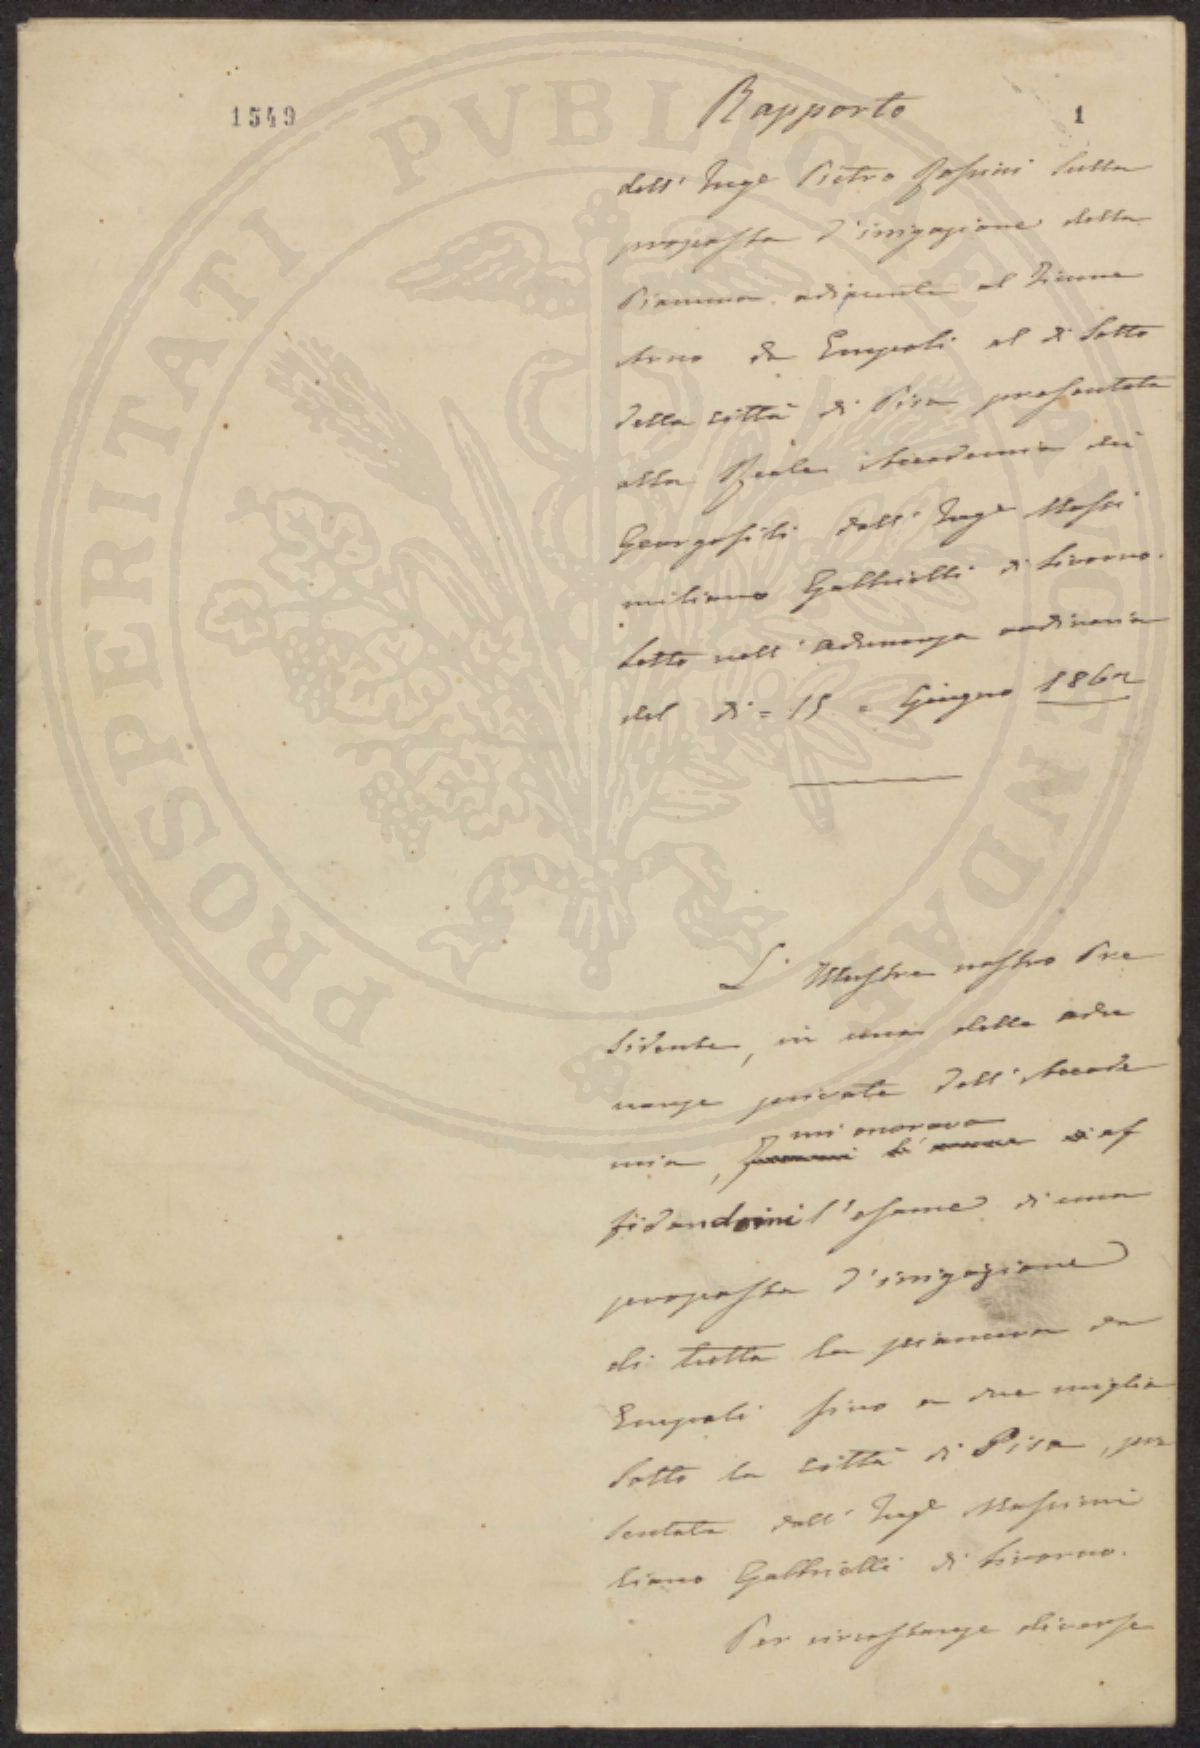 1549
Rapporto
1
dell'Inge Pietro Passini sulla
proposta d'irrigazione della
Pianura adiacente al Fiume
Arno da Empoli al di sotto
della città di Pisa presentata
alla Reale Accademia dei
Georgofili dall'Inge Massi
miliano Gabbrielli di Livorno.
Letto nell'adunanza ordinaria
del dì = 15 = Giugno 1862
L'Illustre nostro Pre
sidente, in una delle adu
nanze private dell'Accade
mi onorava
mia, di af
fidandomi l'esame di una
proposta d'irrigazione
di tutta la pianura da
Empoli fino a due miglia
sotto la città di Pisa, pre
sentata dall'Inge Massimi
liano Gabbrielli di Livorno.
Per circostanze diverse
PROSPERITATI PVBLICAE AVGENDAE